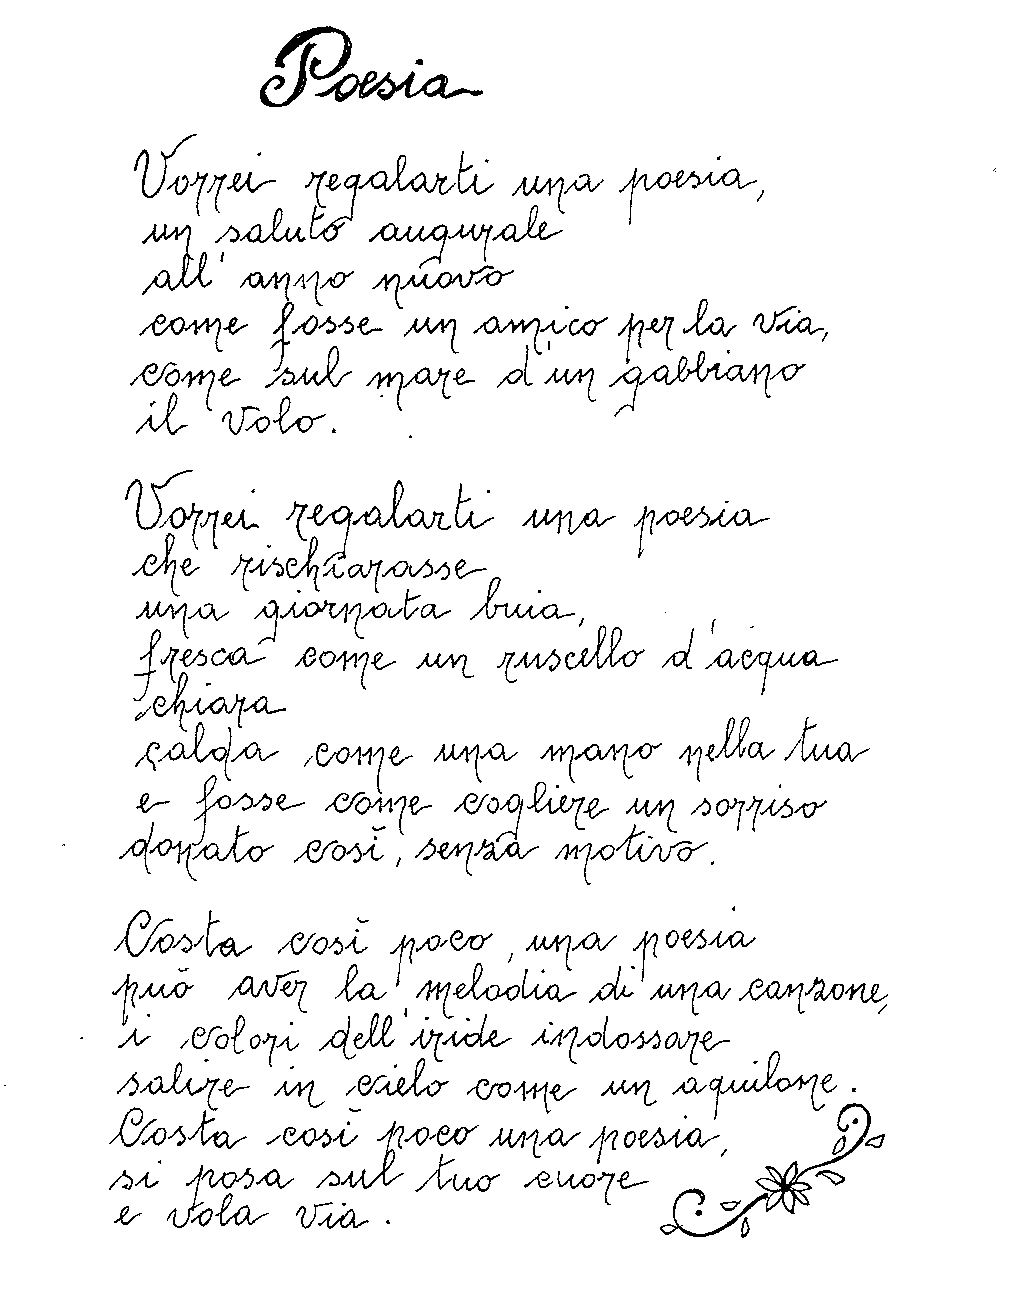 Poesia
Vorrei regalarti una poesia,
un saluto augurale
all'anno nuovo
come fosse un amico per la via,
come sul mare d'un gabbiano
il volo.
Vorrei regalarti una poesia
che rischiarasse
una giornata buia,
fresca come un ruscello d'acqua
chiara
calda come una mano nella tua
e fosse come cogliere un sorriso
donato così, senza motivo.
Costa così poco, una poesia
può aver la melodia di una canzone,
i colori dell'iride indossare
salire in cielo come un aquilone.
Costa così poco una poesia,
si posa sul tuo cuore
e vola via.